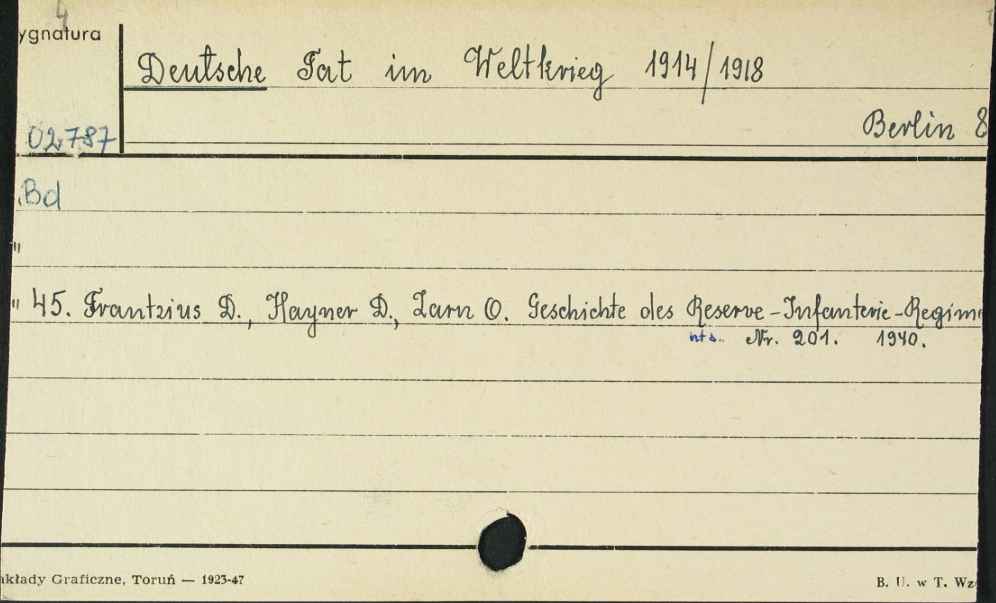 4
ygnatura
Deutsche Tat im Weltkrieg 1914/1918
Berlin 8
02787
.Bd
"
" 45. Frantzius D., Hayner D., Zarn O. Geschichte des Reserve-Infanterie-Regime
nts.. Nr. 201. 1940.
akłady Graficzne, Toruń — 1923-47
B. U. w T. Wz